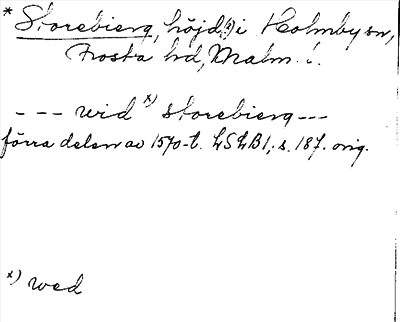 * Storebierg, höjd(?) i Holmby sn,
Frosta hd, Malm. l.
--- wid x) storebierg ---
förra delen av 1570-t. LSLB1, s. 187. orig.
x) wed